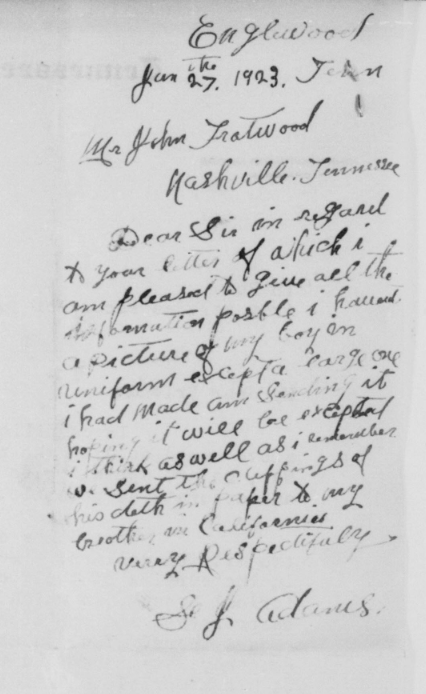 Englewood
Jan the 27, 1923. Tenn
Mr John Trotwood
Nashville. Tennessee
Dear Sir in regard
to your letter of which i
am pleased to give all the
information posble i havent
a picture of my boy in
uniform except a large one
i had made am sending it
hoping it will be excepted
i think as well as i remember
we sent the clippings of
his deth in paper to my
brother in California
very Respectfuly
J. Adams.